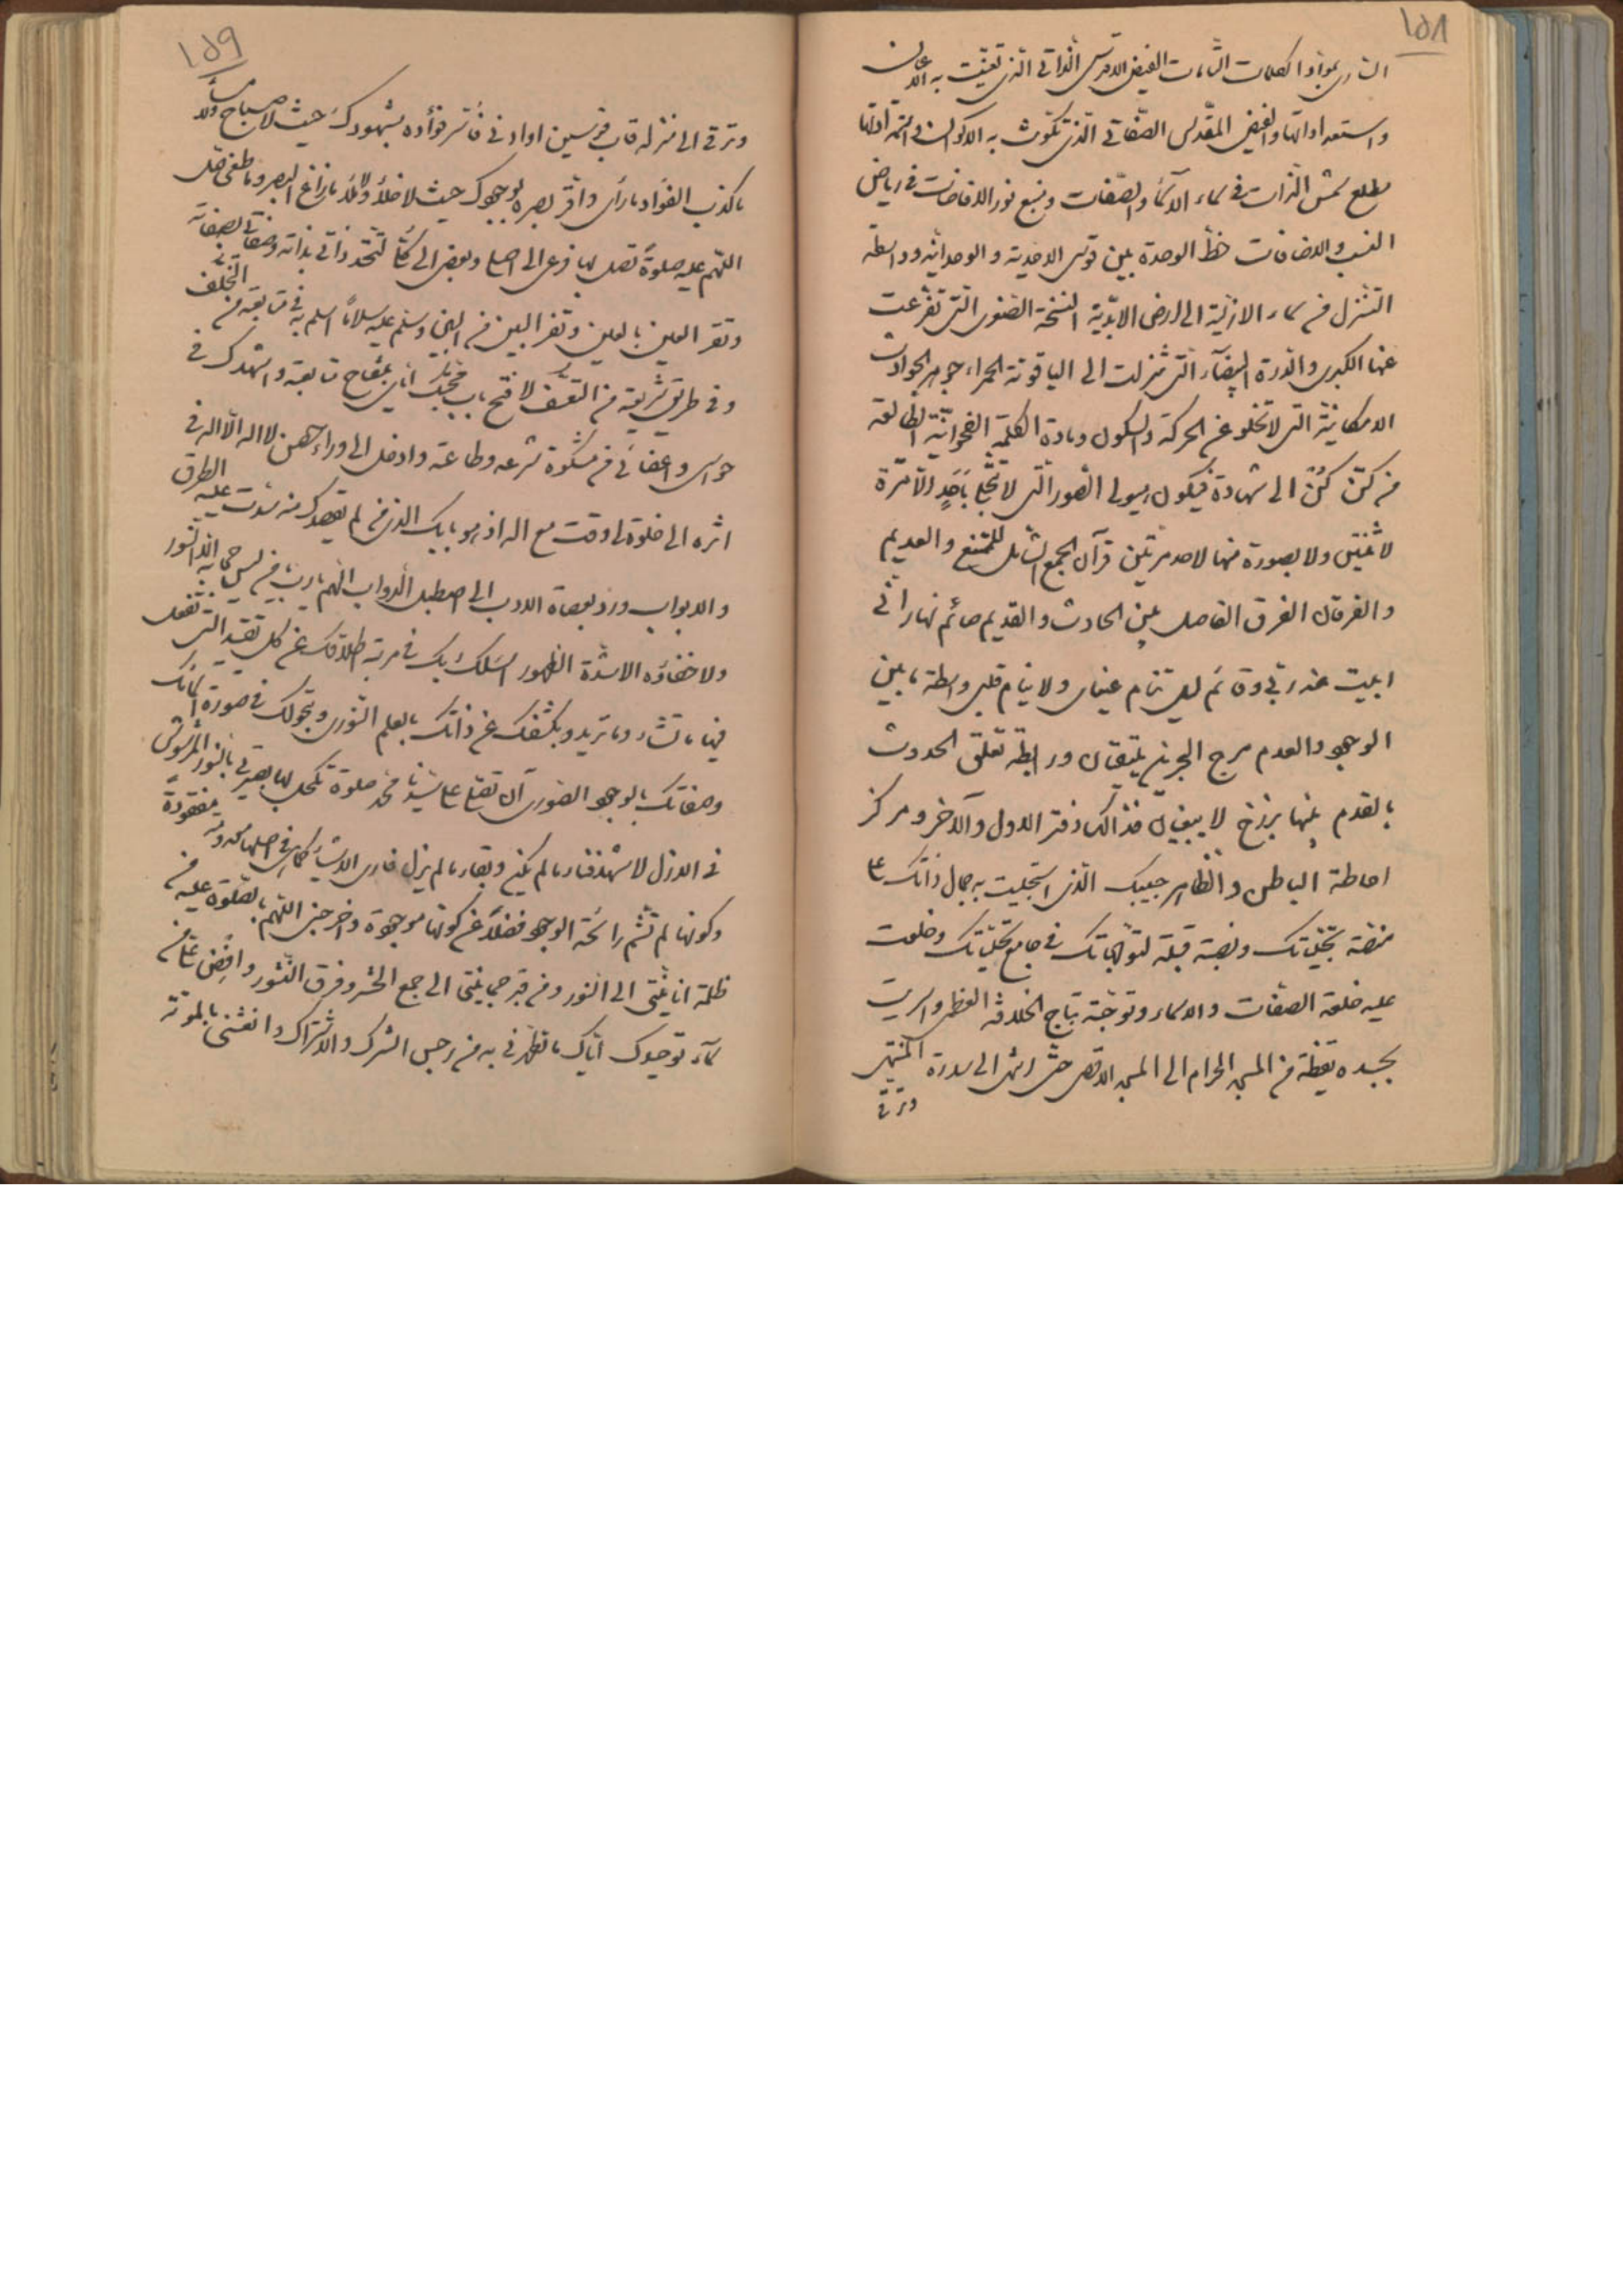 ١٥٨
الساري بمواد الكلمات التامات الفيض الاقدس الذاتي الذي تعينت به الاعيان
واستعداداتها والفيض المقدس الصفاتي الذي تكونت به الاكوان
مطلع شمس الذات في سماء الاسماء والصفات ومنبع نور الافاضات في رياض
النسب والاضافات خط الوحدة بين قوسي الاحدية والواحدانية وواسطة
التنزل من سماء الازلية الى ارض الابدية النسخة الصغرى التي تفرعت
عنها الكبرى والدرة البيضاء التي تنزلت الى الياقوتة الحمراء جوهر الحوادث
الامكانية التي لا تخلو عن الحركة والسكون ومادة الكلمة الفهوانية الطالعة
من كن كن الى شهادة فيكون هيولى الصور التي لا تتجلى باحد الا مرة
لا ثنتين ولا بصورة منها لاحد مرتين قرآن الجمع الشامل للممتنع والعديم
والفرقان الفرق الفاصل بين الحادث والقديم صائم نهار اني
ابيت عند ربي وقائم ليل تنام عيناي ولا ينام قلبي واسطة ما بين
الوجود والعدم مرج البحرين يلتقيان ورابطة تعلق الحدوث
بالقدم بينهما برزخ لا يبغيان فذالكة دفتر الاول والآخر ومركز
احاطة الباطن والظاهر حبيبك الذي استجليت به جمال ذاتك على
منصة تجلياتك ونصبته قبلة لتوجهاتك في جامع تجلياتك وخلعت
عليه خلعة الصفات والاسماء وتوجته بتاج الخلافة العظمى واسريت
بجسده يقظة من المسجد الحرام الى المسجد الاقصى حتى انتهى الى سدرة المنتهى
وترقى
١٥٩
وترقى الى منزلة قاب قوسين او ادنى فانسر فؤاده بشهودك حيث لا صباح ولا مساء
ما كذب الفؤاد ما رأى واقر بصره لوجودك حيث لا خلا ولا ملا ما زاغ البصر وما طغى صل
اللهم عليه صلوة تصل بها فرعي الى اصلي وبعضي الى كلي لتتحد ذاتي بذاته وصفاتي بصفاته
وتقر العين بالعين ويفر البين من البين وسلم عليه سلاما اسلم به في متابعته من التخلف
وفي طريق شريعته من التعسف لافتح باب محبتك اياي بمفتاح متابعته واشهدك في
حواسي واعضائي من مشكوة شرعه وطاعته وادخل الى وراءه حصن لا اله الا الله في
اثره الى خلوة لي وقت مع الله اذ هو بابك الذي من لم يقصدك منه سدت عليه الطرق
والابواب ورد بعصاة الادب الى اصطبل الدواب اللهم يا رب يا من ليس حجابه الا النور
ولا خفاؤه الا شدة الظهور اسئلك بك في مرتبة اطلاقك عن كل تقييد التي تفعل
فيها ما تشاء وما تريد وبكشفك عن ذاتك بالعلم النوري وتحولك في صورة اسمائك
وصفاتك بالوجود الصوري ان تصلي على سيدنا محمد صلوة تكحل بها بصيرتي بالنور المرشوش
في الازل لاشهد فناء ما لم يكن وبقاء ما لم يزل فارى الاشياء كما هي في اصلها معدومة مفقودة
وكونها لم تشم رائحة الوجود فضلا عن كونها موجودة واخرجني اللهم بالصلوة عليه من
ظلمة انانيتي الى النور ومن قبر جسمانيتي الى جمع الحشر وفرق النشور وافض علي من
سماء توحيدك اياك ما تطهرني به من رجس الشرك والاشراك وانعشني بالموتة